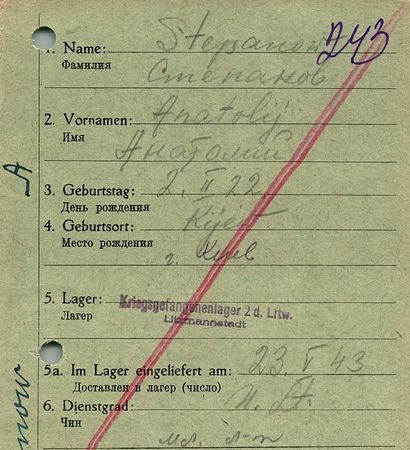 1. Name: Stepanow
243
Фамилия
Степанов
2. Vornamen: Anatolij
Имя
Анатолий
A
3. Geburtstag: 2. II 22
День рождения
4. Geburtsort: Kijew
Место рождения
г. Киев
5. Lager: Kriegsgefangenenlager 2 d. Lftw.
Лагер Litzmannstadt
5a. Im Lager eingeliefert am: 23. V 43
Доставлен в лагер (число)
6. Dienstgrad: U. Lt.
Чин
мл. л-т
now